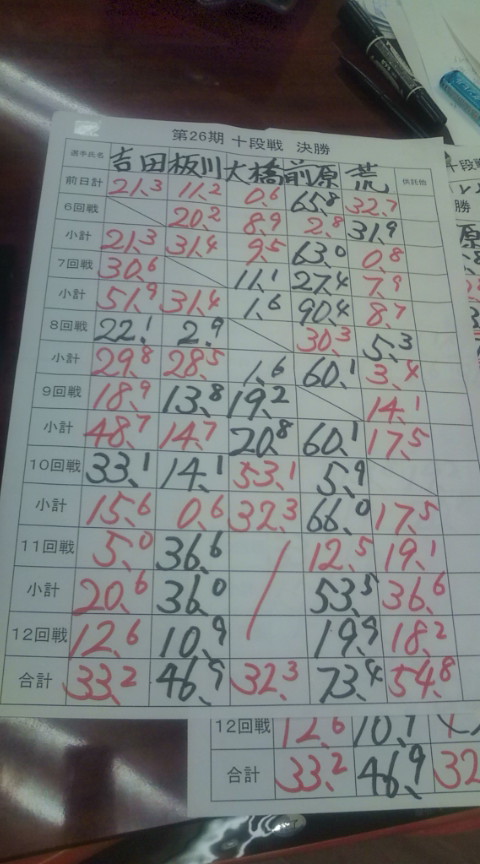 第26期 十段戦 決勝
選手氏名 吉田 板川 大橋 前原 荒 供託他
前日計 21.3 11.2 0.6 65.8 32.7
6回戦 20.2 8.9 2.8 31.9
小計 21.3 31.4 9.5 63.0 0.8
7回戦 30.6 11.1 27.4 7.9
小計 51.9 31.4 1.6 90.4 8.7
8回戦 22.1 2.9 30.3 5.3
小計 29.8 28.5 1.6 60.1 3.4
9回戦 18.9 13.8 19.2 14.1
小計 48.7 14.7 20.8 60.1 17.5
10回戦 33.1 14.1 53.1 5.9
小計 15.6 0.6 32.3 66.0 17.5
11回戦 5.0 36.6 12.5 19.1
小計 20.6 36.0 53.5 36.6
12回戦 12.6 10.9 19.9 18.2
合計 33.2 46.9 32.3 73.4 54.8
12回戦 12.6 10.9
合計 33.2 46.9 32